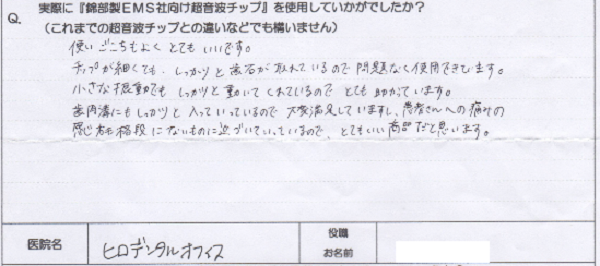 実際に『錦部製EMS社向け超音波チップ』を使用していかがでしたか?
Q.
(これまでの超音波チップとの違いなどでも構いません)
使いごこちもよく とてもいいです。
チップが細くても、しっかりと歯石が取れているので問題なく使用できています。
小さな振動でも しっかりと動いてくれているので とても助かっています。
歯肉溝にもしっかりと入っていっているので 大変満足していますし、患者さんへの痛みの
感じ方も格段にないものに近づいていっているので、とてもいい商品だと思います。
医院名
ヒロデンタルオフィス
役職
お名前